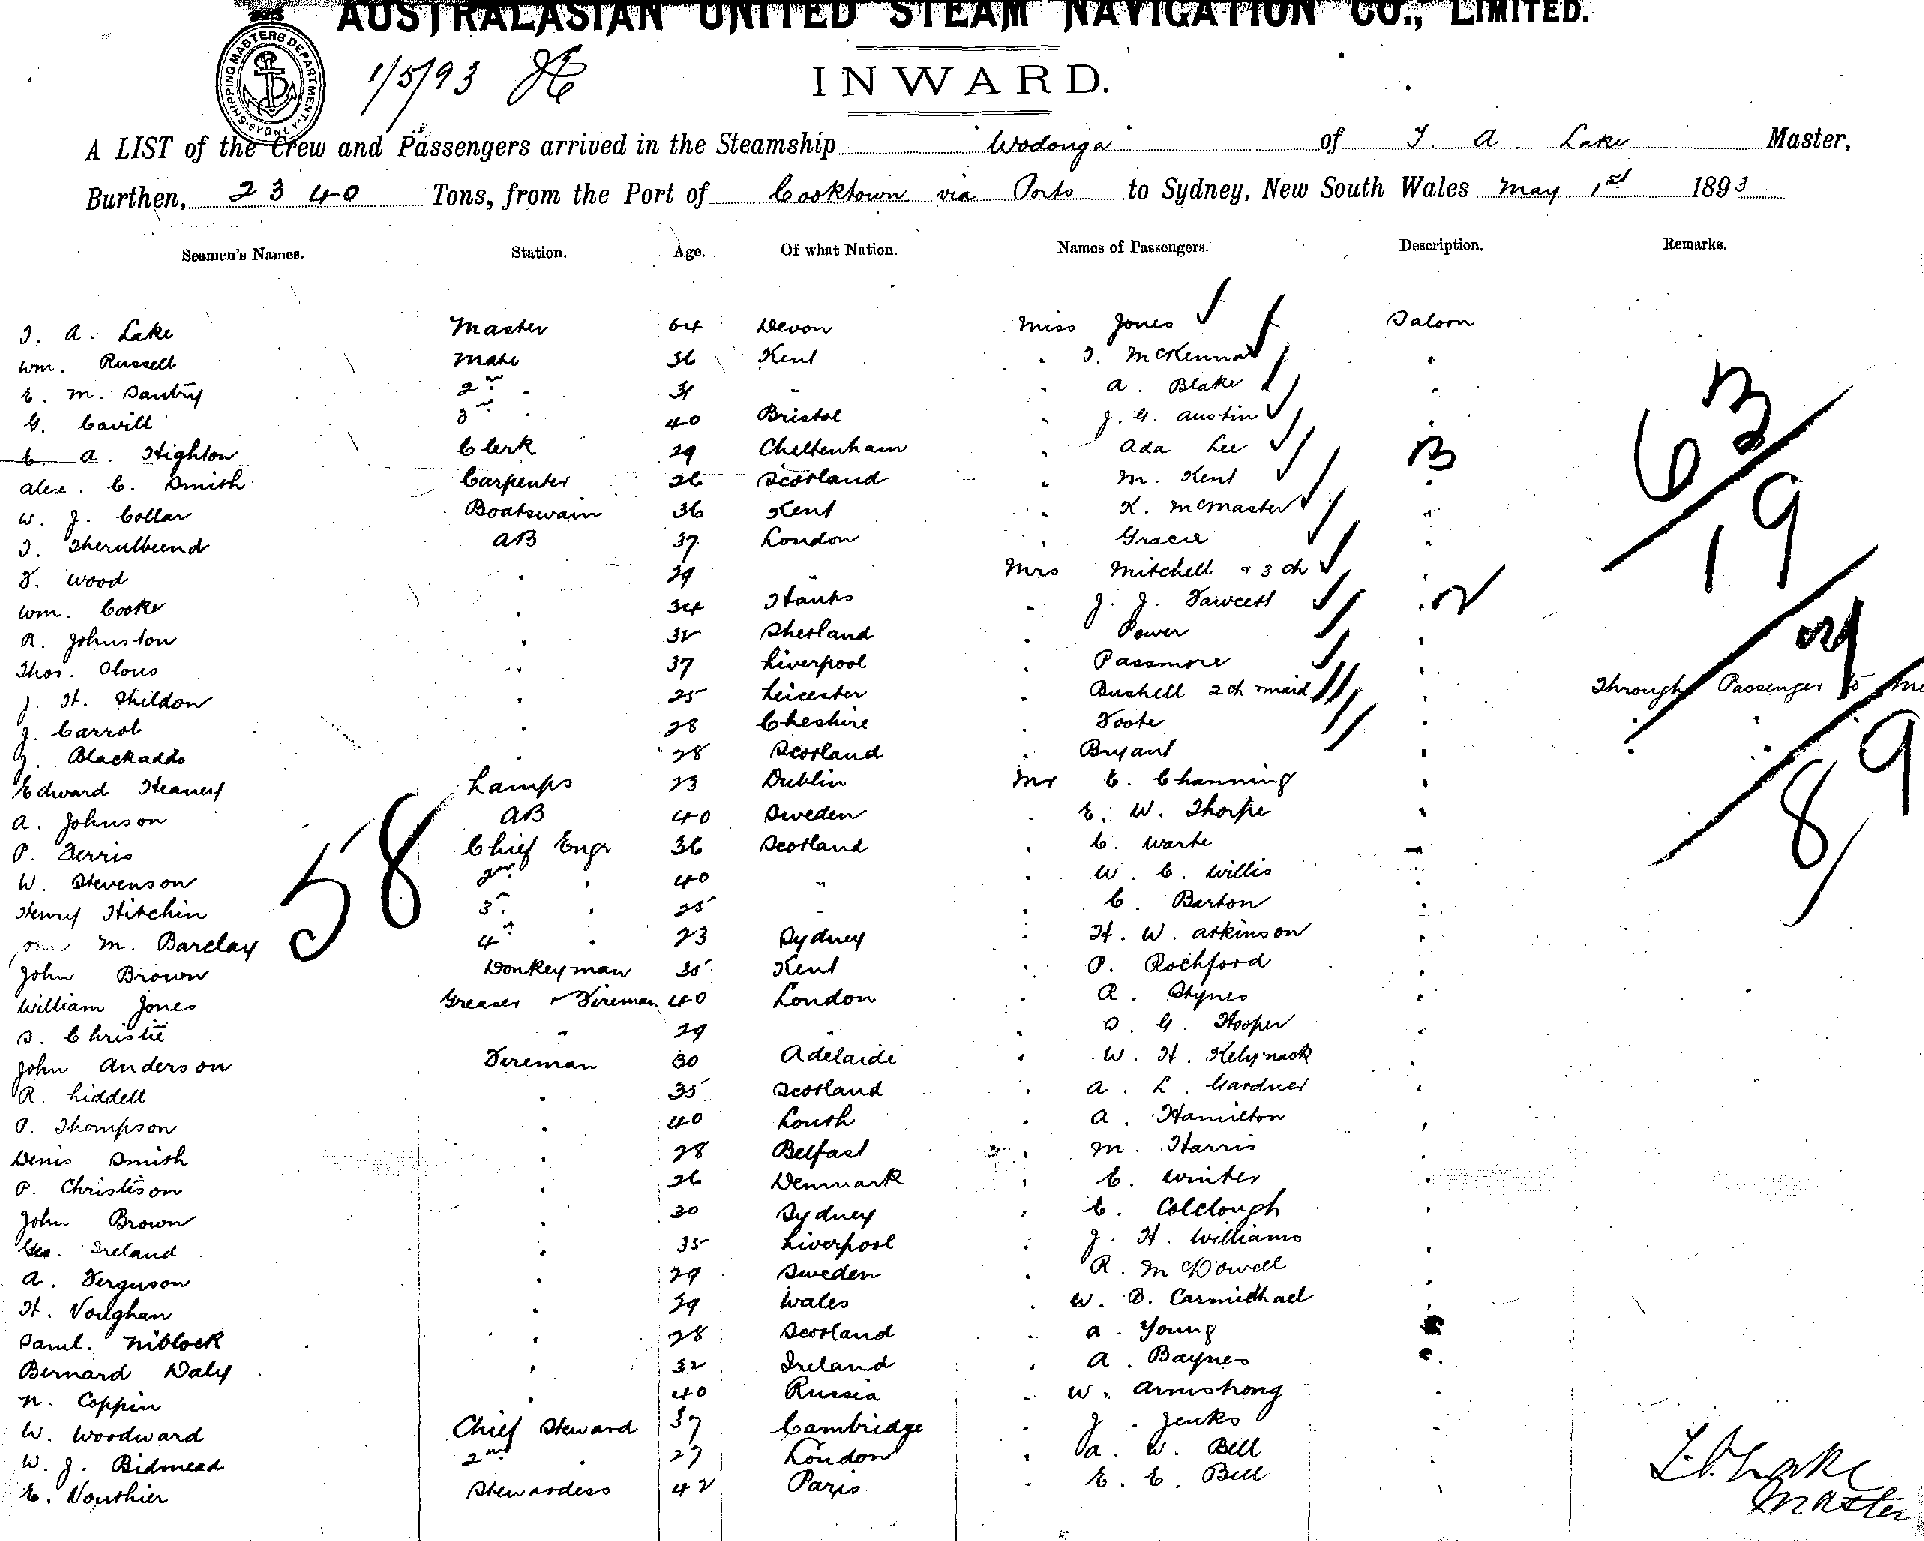 AUSTRALASIAN UNITED STEAM NAVIGATION CO., LIMITED.
SHIPPING MASTERS DEPARTMENT SYDNEY
1/5/93
INWARD.
A LIST of the Crew and Passengers arrived in the Steamship "Wodonga" of T. A. Lake Master,
Burthen, 2340 Tons, from the Port of Cooktown via Ports to Sydney, New South Wales May 1st 1893
Seamen's Names. Station. Age. Of what Nation. Names of Passengers. Description. Remarks.
T. A. Lake Master 64 Devon Miss Jones Saloon
Wm. Russell Mate 36 Kent " T. McKenna "
E. M. Santry 2nd " 31 " " A. Blake "
G. Cavill 3rd " 40 Bristol " J. G. Austin "
C. A. Highton Clerk 29 Cheltenham " Ada Lee 13
Alex. C. Smith Carpenter 26 Scotland " M. Kent "
W. J. Collar Boatswain 36 Kent " K. McMaster "
T. AB 37 London " Gracie "
F. Wood " 29 " Mrs Mitchell & 3 ch "
Wm. Cooke " 34 Hants " J. J. Fawcett " 2
R. Johnston " 32 Shetland " Power "
Thos. Clous " 37 Liverpool " Passmore "
J. H. Shildon " 25 Leicester " Bushell 2 ch & maid " Through Passenger to
J. Carrol " 28 Cheshire " Foote " " "
J. Blackadds " 28 Scotland " Bryant "
Edward Heaney Lamps 23 Dublin Mr C. Channing "
A. Johnson AB 40 Sweden " E. W. Thorpe "
P. Ferris Chief Engr 36 Scotland " C. Warte "
W. Stevenson 2nd " 40 " " W. C. Willis "
Henry Hitchin 3rd " 25 " " C. Barton "
M. Barclay 4th " 23 Sydney " H. W. Atkinson "
John Brown Donkeyman 35 Kent " P. Rochford "
William Jones Greaser & Fireman 40 London " R. Stynes "
S. Christie " 29 " " S. G. Hooper "
John Anderson Fireman 30 Adelaide " W. H. Kelynack "
R. Liddell " 35 Scotland " A. L. Gardner "
P. Thompson " 40 Louth " A. Hamilton "
Denis Smith " 28 Belfast " M. Harris "
P. Christison " 26 Denmark " C. Winter "
John Brown " 30 Sydney " C. Colclough "
Geo. Ireland " 35 Liverpool " J. H. Williams "
A. Ferguson " 29 Sweden " R. McDowell "
H. Vaughan " 29 Wales " W. B. Carmichael "
Saml. Niblock " 28 Scotland " A. Young "
Bernard Daly " 32 Ireland " A. Baynes "
N. Coppin " 40 Russia " W. Armstrong "
W. Woodward Chief Steward 37 Cambridge " J. Jenks "
W. J. Bidmead 2nd " 27 London " A. W. Bell "
E. Vouthier Stewardess 42 Paris " E. E. Bell "
58
63
19
89
T. A. Lake
Master